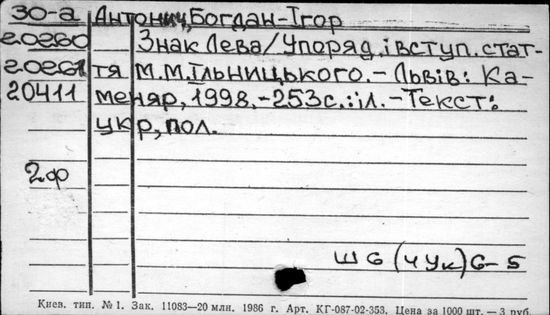 30-а Антонич, Богдан-Ігор
20260 Знак Лева/Упоряд. і вступ. стат-
20261 тя М.М.Ільницького.-Львів: Ка-
20411 меняр, 1998.-253с.:іл.-Текст:
укр, пол.
2ф
Ш6(4Ук)6-5
Киев. тип. № 1. Зак. 11083—20 млн. 1986 г. Арт. КГ-087-02-353. Цена за 1000 шт. — 3 руб.